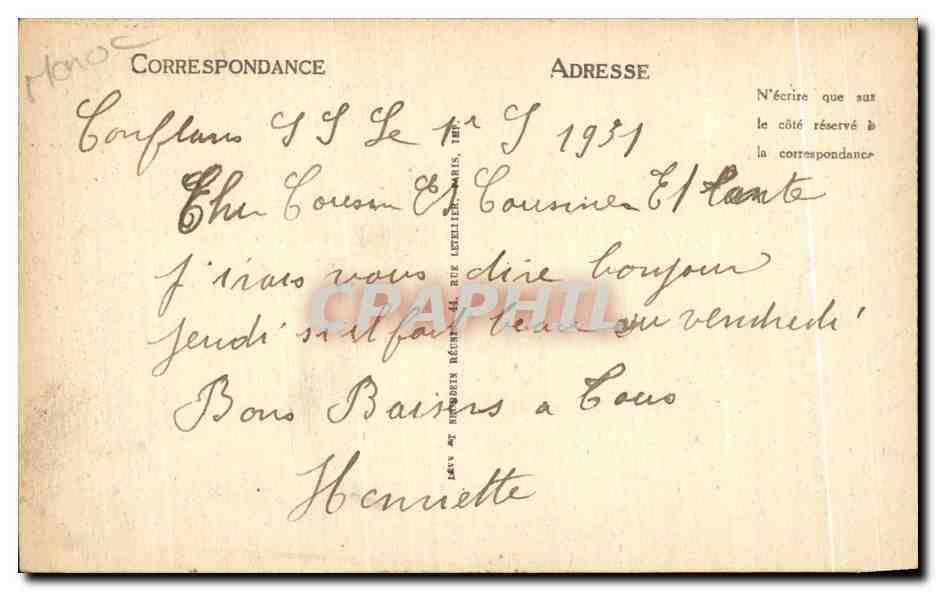 Monoc
CORRESPONDANCE
ADRESSE
N'écrire que sur
le côté réservé à
la correspondance
Conflans S S Le 1r S 1931
Cher Cousin Et Cousine Et tante
j'irais vous dire bonjour
jeudi s'il fait beau ou vendredi
Bons Baisers a Tous
Henriette
LÉVY ET NEURDEIN RÉUNIS, 44, RUE LETELLIER, PARIS, IMP.
CPAPHIL